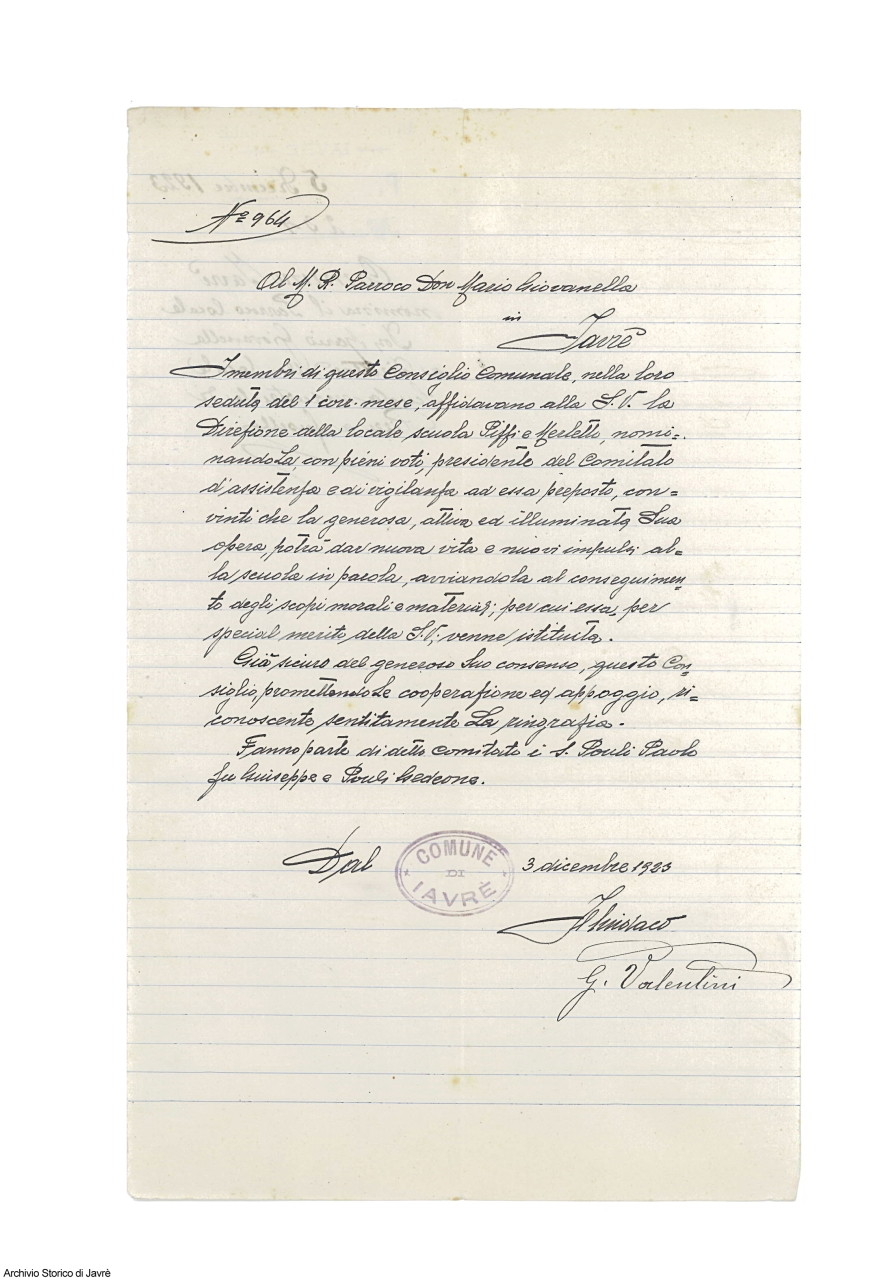 Nº 964
Al M. R. Parroco Don Mario Giovanella
in
Javrè
I membri di questo Consiglio Comunale, nella loro
seduta del 1 corr. mese, affidavano alla S. V. la
Direzione della locale scuola Piffi e Merletti, nomi=
nandoLa, con pieni voti, presidente del Comitato
d'assistenza e di vigilanza ad essa preposto, con=
vinti che la generosa, attiva ed illuminata Sua
opera, potrà dar nuova vita e nuovi impulsi al=
la scuola in parola, avviandola al conseguimen=
to degli scopi morali e materiali, per cui essa, per
special merito della S. V. venne istituita.
Già sicuro del generoso Suo consenso, questo Con=
siglio, promettendoLe cooperazione ed appoggio, ri=
conoscente sentitamente La ringrazia.
Fanno parte di detto Comitato i S. Pouli Paolo
fu Giuseppe e Pouli Gedeone.
Dal
COMUNE
DI
IAVRÈ
3 dicembre 1923
Il Sindaco
G. Valentini
Archivio Storico di Javrè